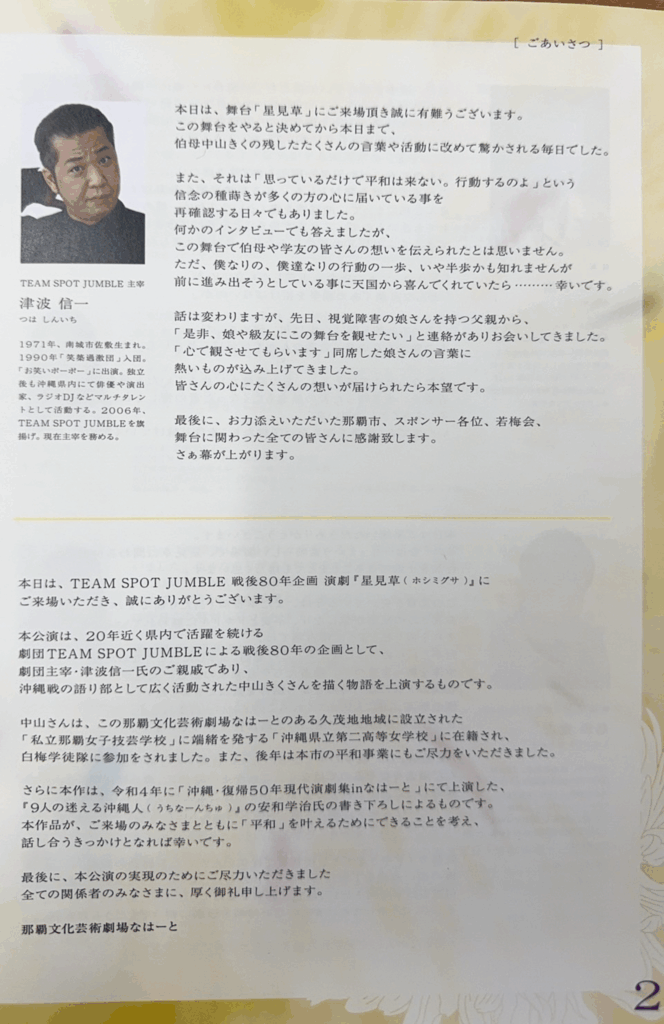 ［ ごあいさつ ］
本日は、舞台「星見草」にご来場頂き誠に有難うございます。
この舞台をやると決めてから本日まで、
伯母中山きくの残したたくさんの言葉や活動に改めて驚かされる毎日でした。
また、それは「思っているだけで平和は来ない。行動するのよ」という
信念の種蒔きが多くの方の心に届いている事を
再確認する日々でもありました。
何かのインタビューでも答えましたが、
この舞台で伯母や学友の皆さんの想いを伝えられたとは思いません。
ただ、僕なりの、僕達なりの行動の一歩、いや半歩かも知れませんが
前に進み出そうとしている事に天国から喜んでくれていたら………幸いです。
話は変わりますが、先日、視覚障害の娘さんを持つ父親から、
「是非、娘や級友にこの舞台を観せたい」と連絡がありお会いしてきました。
「心で観させてもらいます」同席した娘さんの言葉に
熱いものが込み上げてきました。
皆さんの心にたくさんの想いが届けられたら本望です。
最後に、お力添えいただいた那覇市、スポンサー各位、若梅会、
舞台に関わった全ての皆さんに感謝致します。
さぁ幕が上がります。
TEAM SPOT JUMBLE 主宰
津波 信一
つは しんいち
1971年、南城市佐敷生まれ。
1990年「笑築過激団」入団。
「お笑いポーポー」に出演。独立
後も沖縄県内にて俳優や演出
家、ラジオDJなどマルチタレン
トとして活動する。2006年、
TEAM SPOT JUMBLEを旗
揚げ。現在主宰を務める。
本日は、TEAM SPOT JUMBLE 戦後80年企画 演劇『星見草（ホシミグサ）』に
ご来場いただき、誠にありがとうございます。
本公演は、20年近く県内で活躍を続ける
劇団TEAM SPOT JUMBLEによる戦後80年の企画として、
劇団主宰・津波信一氏のご親戚であり、
沖縄戦の語り部として広く活動された中山きくさんを描く物語を上演するものです。
中山さんは、この那覇文化芸術劇場なはーとのある久茂地地域に設立された
「私立那覇女子技芸学校」に端緒を発する「沖縄県立第二高等女学校」に在籍され、
白梅学徒隊に参加をされました。また、後年は本市の平和事業にもご尽力をいただきました。
さらに本作は、令和４年に「沖縄・復帰50年現代演劇集inなはーと」にて上演した、
『9人の迷える沖縄人（うちなーんちゅ）』の安和学治氏の書き下ろしによるものです。
本作品が、ご来場のみなさまとともに「平和」を叶えるためにできることを考え、
話し合うきっかけとなれば幸いです。
最後に、本公演の実現のためにご尽力いただきました
全ての関係者のみなさまに、厚く御礼申し上げます。
那覇文化芸術劇場なはーと
2